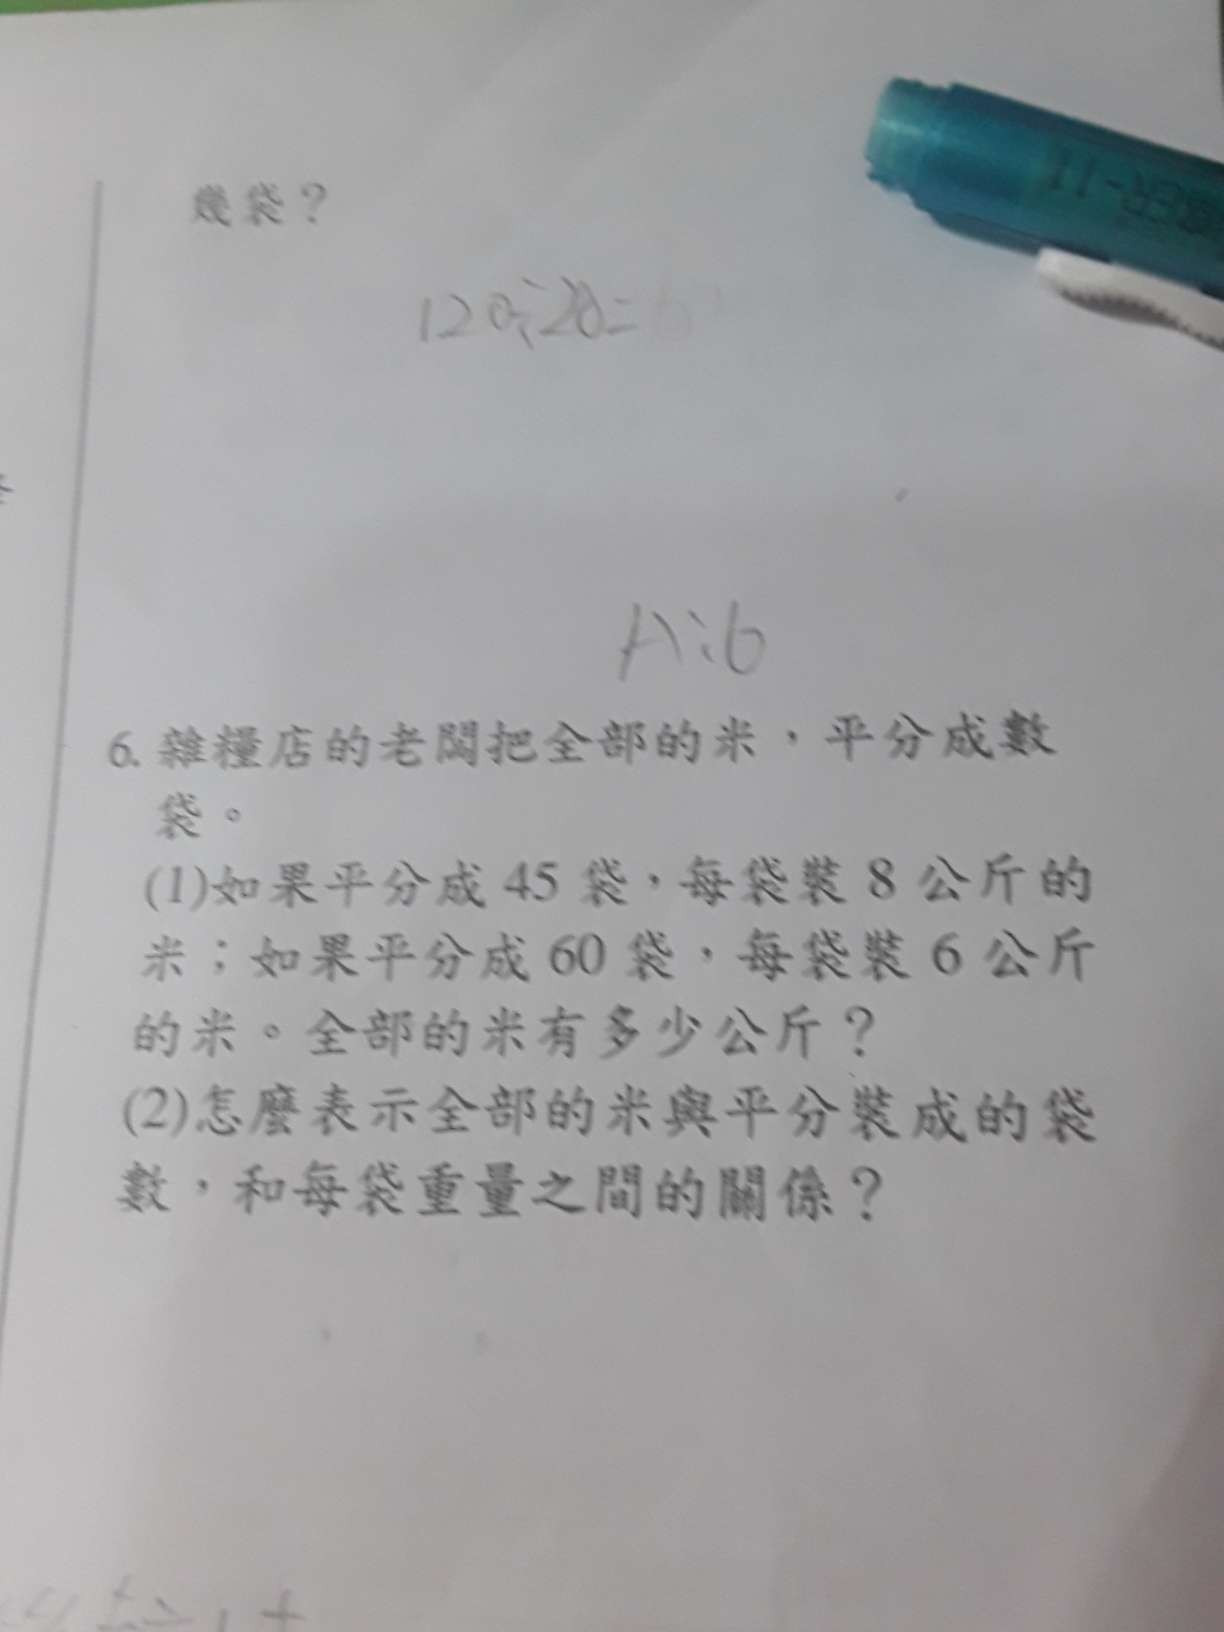 幾袋？
120÷20=6
A:6
6. 雜糧店的老闆把全部的米，平分成數
袋。
(1)如果平分成 45 袋，每袋裝 8 公斤的
米；如果平分成 60 袋，每袋裝 6 公斤
的米。全部的米有多少公斤？
(2)怎麼表示全部的米與平分裝成的袋
數，和每袋重量之間的關係？